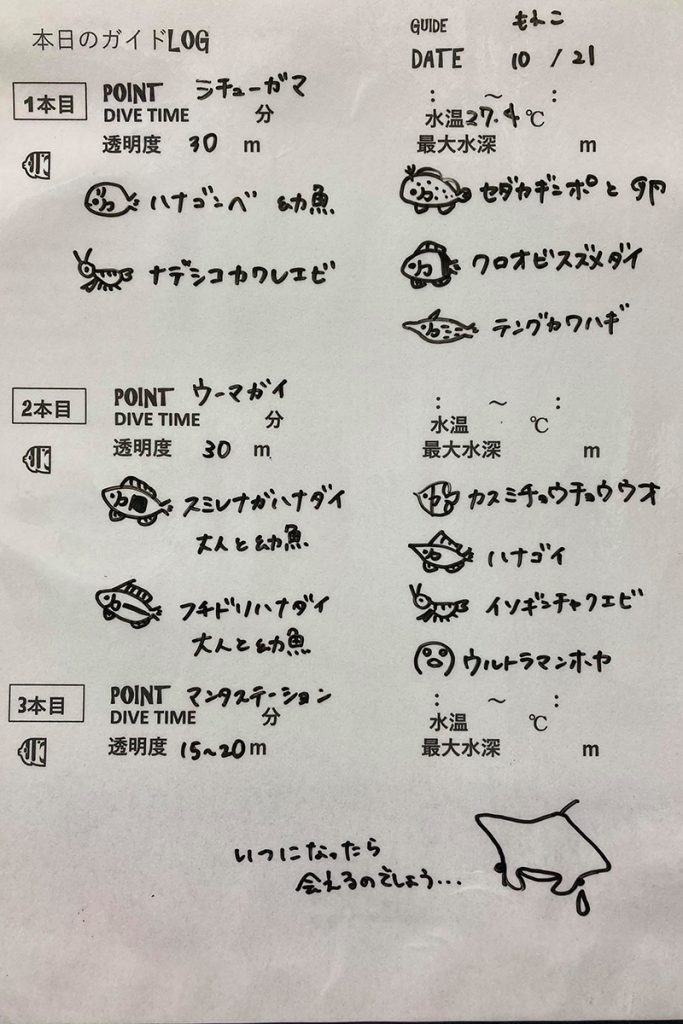 本日のガイドLOG
GUIDE もれこ
DATE 10 / 21
1本目
POINT シチューガマ
DIVE TIME 分
: ～ :
水温27.4℃
透明度 30 m
最大水深 m
ハナゴンベ 幼魚
セダカギンポと卵
ナデシコカクレエビ
クロオビスズメダイ
テングカワハギ
2本目
POINT ウーマガイ
DIVE TIME 分
: ～ :
水温 ℃
透明度 30 m
最大水深 m
スミレナガハナダイ
大人と幼魚
カスミチョウチョウウオ
ハナゴイ
フチドリハナダイ
大人と幼魚
イソギンチャクエビ
ウルトラマンホヤ
3本目
POINT マンタステーション
DIVE TIME 分
: ～ :
水温 ℃
透明度 15~20m
最大水深 m
いつになったら
会えるのでしょう...